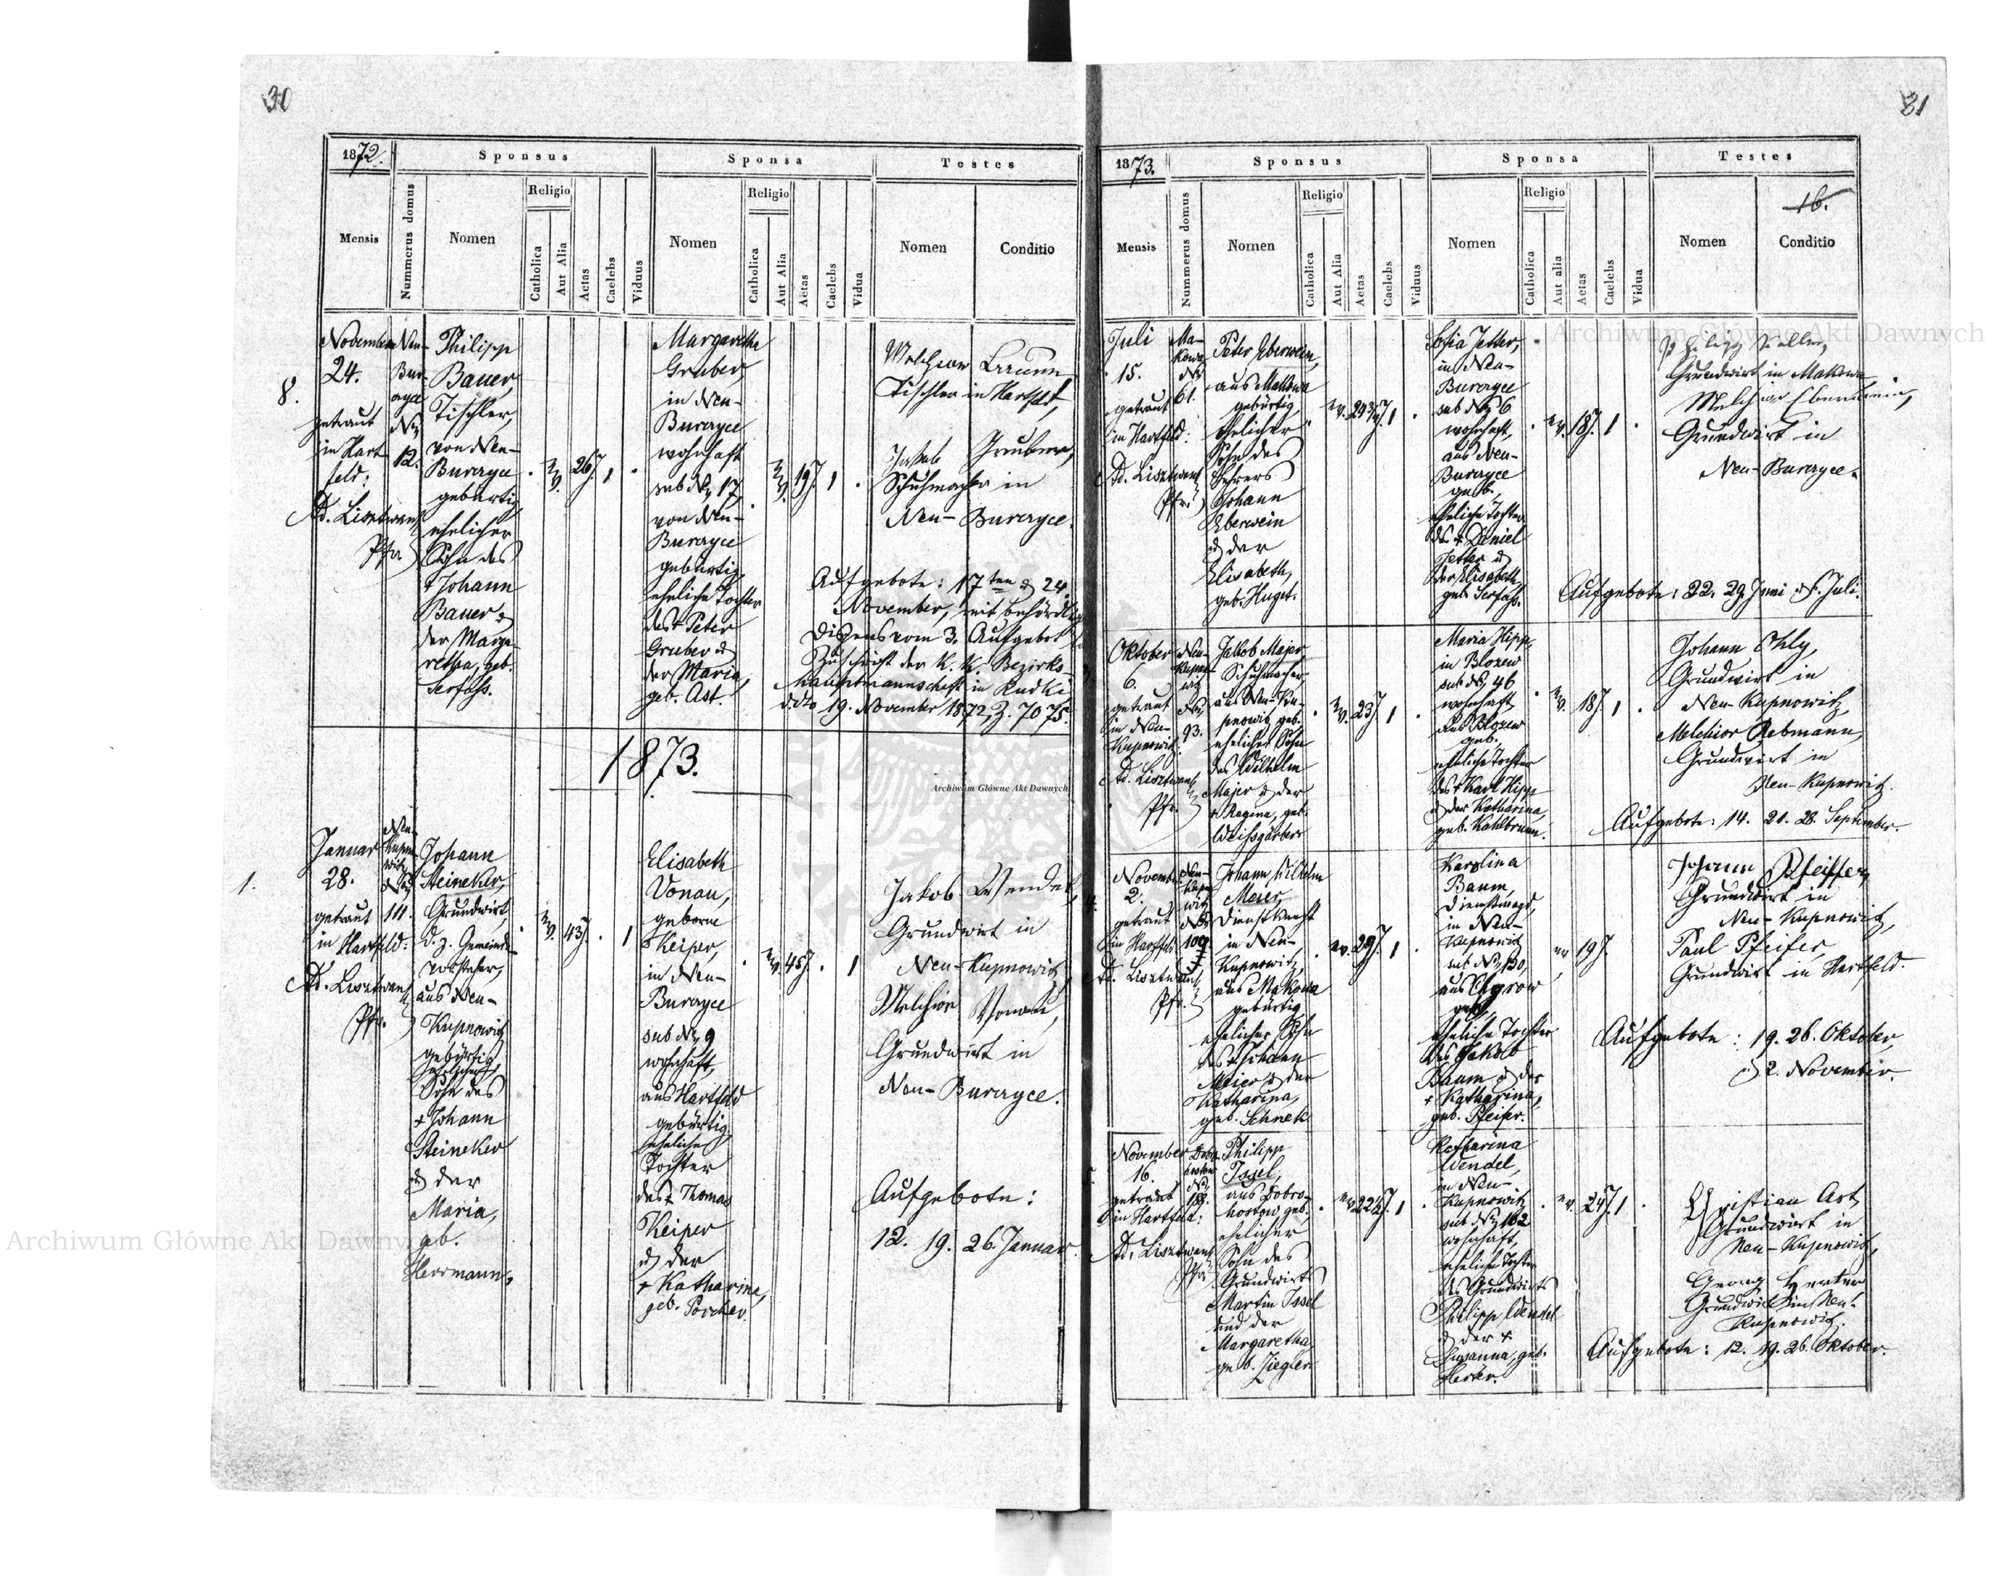 30
1872.
Sponsus
Sponsa
Testes
Mensis
Nummerus domus
Nomen
Religio
Catholica
Aut Alia
Aetas
Caelebs
Viduus
Nomen
Religio
Catholica
Aut Alia
Aetas
Caelebs
Vidua
Nomen
Conditio
8.
November
24.
getraut
in Hart
feld:
Ad. Lisztwan
Pfr.
Neu-
Bur-
ayce
No
12.
Philipp
Bauer,
Tischler,
von Neu-
Burayce
gebürtig,
ehelicher
Sohn des
+ Johann
Bauer &
der Marga-
retha, geb.
Serfass.
ev.
26 J.
1
Margaretha
Gruber,
in Neu-
Burczyce
wohnhaft
sub No 17,
von Neu-
Burczyce
gebürtig,
eheliche Tochter
des + Peter
Gruber &
der Maria,
geb. Ast.
ev.
19 J.
1
Melchior Braun
Tischler in Hartfeld,
Jakob Gruber,
Schuhmacher in
Neu-Burczyce.
Aufgebote: 17ten & 24.
November, mit behördl.
Dispens vom 3. Aufgebot
Zuschrift der K. K. Bezirks-
hauptmannschaft in Rudki
ddto 19. November 1872, Z. 7075.
1873.
1.
Januar
28.
getraut
in Hartfeld:
Ad. Lisztwan
Pfr.
Neu-
Kupno-
witz
No
111.
Johann
Steineker,
Grundwirt,
d. z. Gemeinde-
vorsteher,
aus Neu-
Kupnowitz
gebürtig,
ehelicher
Sohn des
+ Johann
Steineker
& der
Maria,
geb.
Herrmann.
ev.
43 J.
1
Elisabeth
Vonau,
geborne
Keiper,
in Neu-
Burczyce
sub No 9
wohnhaft,
aus Hartfeld
gebürtig,
eheliche
Tochter
des + Thomas
Keiper
& der
+ Katharina,
geb. Porcher.
ev.
45 J.
1
Jakob Wendel,
Grundwirt in
Neu-Kupnowitz,
Melchior Vonau,
Grundwirt in
Neu-Burczyce.
Aufgebote:
12. 19. 26. Januar.
31
1873.
Sponsus
Sponsa
Testes
Mensis
Nummerus domus
Nomen
Religio
Catholica
Aut Alia
Aetas
Caelebs
Viduus
Nomen
Religio
Catholica
Aut alia
Aetas
Caelebs
Vidua
Nomen
Conditio
16.
Juli
15.
getraut
in Hartfeld:
Ad. Lisztwan
Pfr.
Ma-
kowa
No
61.
Peter Eberwein,
aus Makowa
gebürtig,
ehelicher
Sohn des
Lehrers
Johann
Eberwein
& der
Elisabeth,
geb. Huget.
ev.
1
Sofia Jetter,
in Neu-
Burczyce
sub No 6
wohnhaft,
aus Neu-
Burczyce
geb.,
eheliche Tochter
des + Daniel
Jetter &
der Elisabeth,
geb. Serfass.
ev.
18 J.
1
Philipp Keller,
Grundwirt in Makowa
Melchior Eberwein,
Grundwirt in
Neu-Burczyce.
Aufgebote: 22. 29. Juni & 6. Juli.
Oktober
6.
getraut
in Neu-
Kupnowitz
Ad. Lisztwan
Pfr.
Neu-
Kupno-
witz
No
93.
Jakob Majer
Schuhmacher,
aus Neu-Ku-
pnowitz geb.
ehelicher Sohn
des Wilhelm
Majer & der
+ Regina, geb.
Weissgärber.
ev.
23 J.
1
Maria Hipp,
in Blozew
sub No 46
wohnhaft,
aus Blozew
geb.
eheliche Tochter
des + Karl Hipp
& der Katharina,
geb. Kahlbrunn.
ev.
18 J.
1
Johann Ohly,
Grundwirt in
Neu-Kupnowitz,
Melchior Rebmann,
Grundwirt in
Neu-Kupnowitz.
Aufgebote: 14. 21. 28. September.
November
2.
getraut
in Hartfeld:
Ad. Lisztwan
Pfr.
Neu-
Kupno-
witz
No
109
Johann Wilhelm
Meier,
Dienstknecht
in Neu-
Kupnowitz,
aus Makowa
gebürtig,
ehelicher Sohn
des + Johann
Meier & der
Katharina,
geb. Schnek
ev.
29 J.
1
Karolina
Baum,
Dienstmagd,
in Neu-
Kupnowitz
sub No 130,
aus Ugrow
geb.,
eheliche Tochter
des Jakob
Baum & der
+ Katharina,
geb. Pfeifer.
ev.
19 J.
Johann Pfeiffer,
Grundwirt in
Neu-Kupnowitz,
Paul Pfeifer,
Grundwirt in Hartfeld.
Aufgebote: 19. 26. Oktober,
& 2. November.
November
16.
getraut
in Hartfeld:
Ad. Lisztwan
Pfr.
Philipp
Issel,
aus Dobro-
hostow geb.,
ehelicher
Sohn des
Grundwirts
Martin Issel
und der
Margaretha
geb. Ziegler.
ev.
1
Katharina
Wendel,
in Neu-
Kupnowitz
sub No 162
wohnhaft,
eheliche Tochter
des Grundwirts
Philipp Wendel
& der +
Susanna, geb.
Herter.
ev.
24 J.
1
Christian Ast,
Grundwirt in
Neu-Kupnowitz,
Georg Herter
Grundwirt in Neu-
Kupnowitz.
Aufgebote: 12. 19. 26. Oktober.
Archiwum Główne Akt Dawnych
Archiwum Główne Akt Dawnych
Archiwum Główne Akt Dawnych